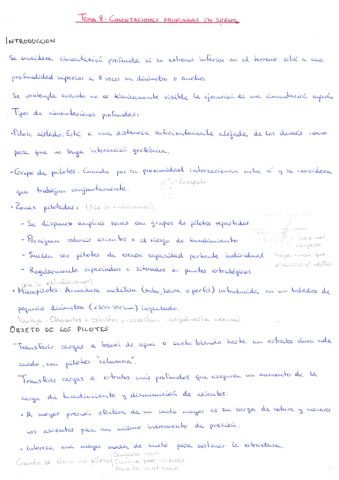 TEMA 8: CIMENTACIONES PROFUNDAS EN SUELOS
INTRODUCCION
Se considera cimentación profunda si su extremo inferior en el terreno está a una
profundidad superior a 8 veces su diámetro o ancho.
Se contempla cuando no es técnicamente viable la ejecución de una cimentación superfi
Tipos de cimentaciones profundas:
• Pilote aislado: Está a una distancia suficientemente alejada de los demás como
para que no haya interacción geotécnica.
• Grupo de pilotes: Cuando por su proximidad interaccionan entre sí y se considera
que trabajan conjuntamente. → Encepado
• Zonas pilotadas: (No estudiaremos)
- Se disponen amplias zonas con grupos de pilotes repartidos
- Persiguen reducir asientos o el riesgo de hundimiento
- Suelen ser pilotes de escasa capacidad portante individual
- Regularmente espaciados o situados en puntos estratégicos
(No lo estudiaremos)
• Micropilotes: Armadura metálica (tubo, barra o perfil) introducida en un taladro de
pequeño diámetro inyectado.
OBJETO DE LOS PILOTES
- Transferir cargas a través de agua o suelo blando hasta un estrato duro ade
cuado, con pilotes "columna".
- Transferir cargas a estratos más profundos que aseguran un aumento de la
carga de hundimiento y disminución de asientos:
• A mayor presión efectiva de un suelo mayor es su carga de rotura y menores
los asientos para un mismo incremento de presión.
• Interesa una mayor masa de suelo para sostener la estructura.